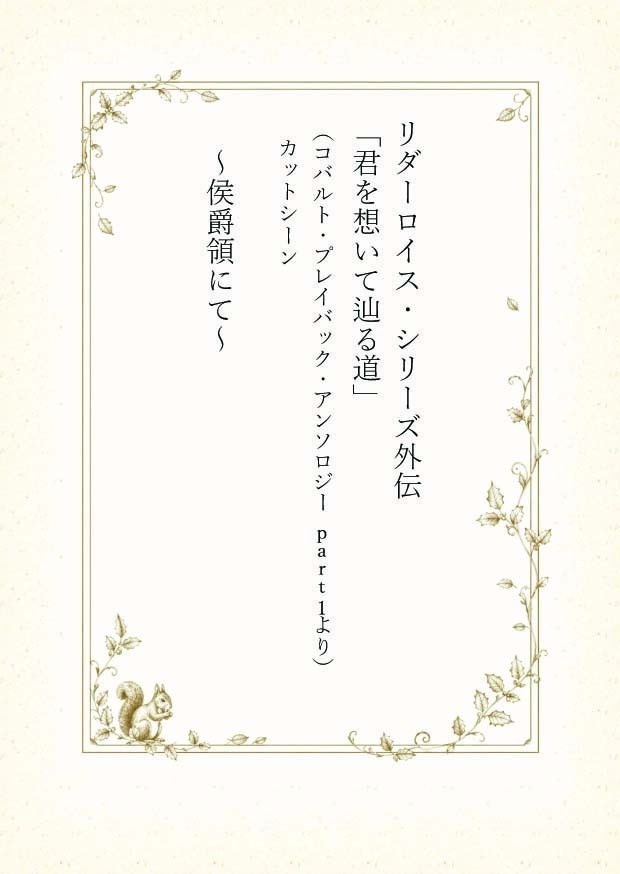 リダーロイス・シリーズ外伝
「君を想いて辿る道」
（コバルト・プレイバック・アンソロジー part1より）
カットシーン
～侯爵領にて～